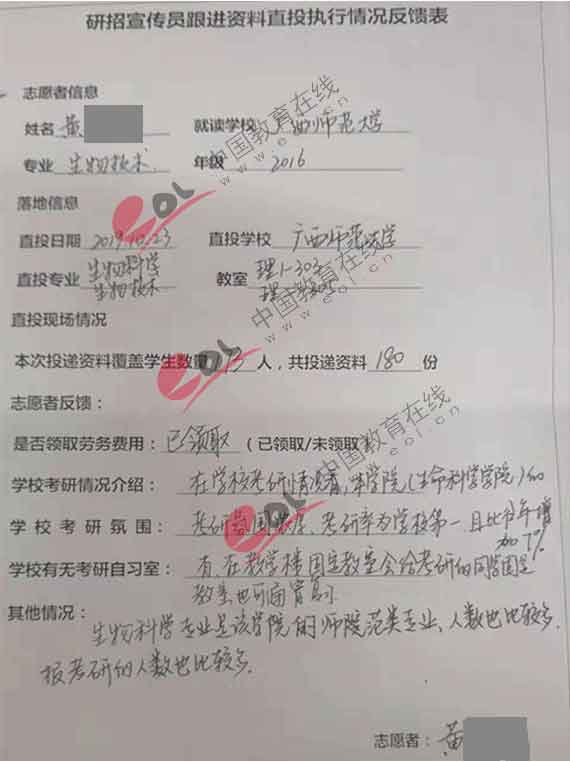 研招宣传员跟进资料直投执行情况反馈表
志愿者信息
姓名 黄 就读学校 师范大学
专业 生物技术 年级 2016
落地信息
直投日期 2019.10.23 直投学校 广西师范大学
直投专业 生物科学 教室 理1-303
生物技术
直投现场情况
本次投递资料覆盖学生数量 173 人，共投递资料 180 份
志愿者反馈：
是否领取劳务费用：已领取（已领取/未领取）
学校考研情况介绍：在学校考研情况看，本学院（生命科学学院）的
学校考研氛围：考研氛围浓厚、考研率为学校第一且比往年增
加了%
学校有无考研自习室：有，在教学楼固定教室会给考研的同学固定
教室也可通宵
其他情况：
生物科学专业是该学院的师范类专业、人数也比较多，
报考研的人数也比较多.
志愿者：黄
eol 中国教育在线
www.eol.cn
eol 中国教育在线
www.eol.cn
eol 中国教育在线
www.eol.cn